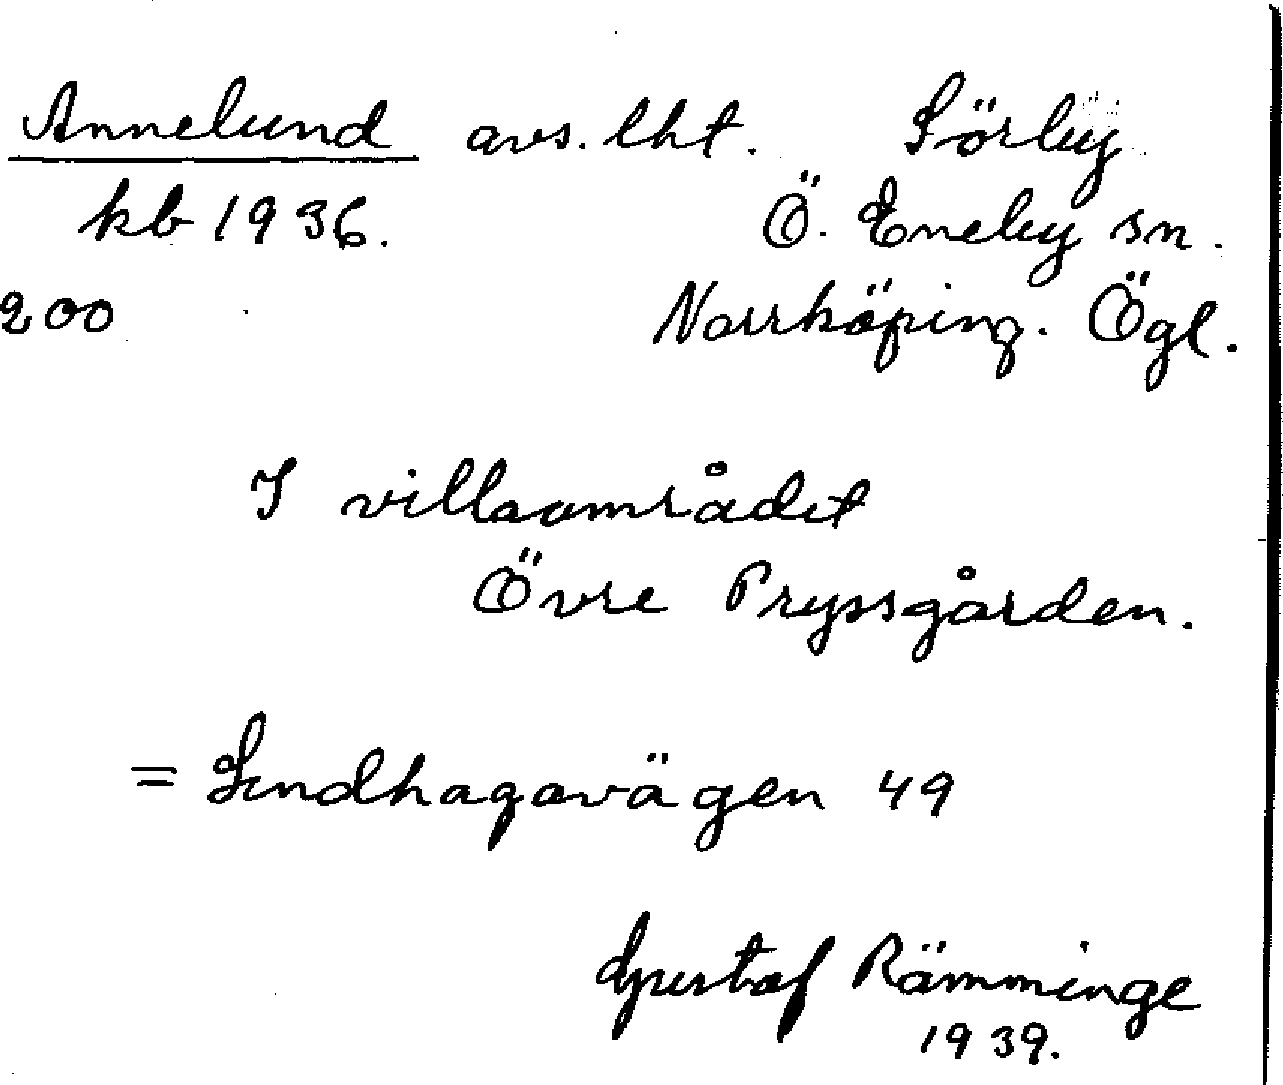 Annelund avs. lht. Sörby
kb 1936. Ö. Eneby sn.
200 Norrköping. Ögl.
I villaområdet
Övre Pryssgården.
= Lindhagavägen 49
Gustaf Rämminge
1939.